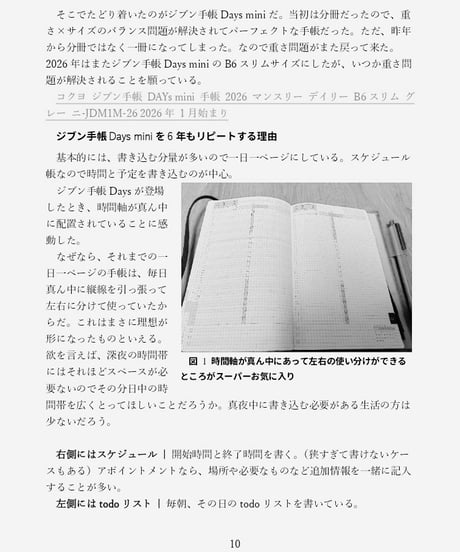 そこでたどり着いたのがジブン手帳 Days mini だ。当初は分冊だったので、重
さ×サイズのバランス問題が解決されてパーフェクトな手帳だった。ただ、昨年
から分冊ではなく一冊になってしまった。なので重さ問題がまた戻って来た。
2026 年はまたジブン手帳 Days mini の B6 スリムサイズにしたが、いつか重さ問
題が解決されることを願っている。
コクヨ ジブン手帳 DAYs mini 手帳 2026 マンスリー デイリー B6 スリム グ
レー ニ-JDM1M-26 2026 年 1 月始まり
ジブン手帳 Days mini を 6 年もリピートする理由
基本的には、書き込む分量が多いので一日一ページにしている。スケジュール
帳なので時間と予定を書き込むのが中心。
ジブン手帳 Days が登場
したとき、時間軸が真ん中
に配置されていることに感
動した。
なぜなら、それまでの一
日一ページの手帳は、毎日
真ん中に縦線を引っ張って
左右に分けて使っていたか
らだ。これはまさに理想が
形になったものといえる。
欲を言えば、深夜の時間帯
にはそれほどスペースが必
要ないのでその分日中の時
間帯を広くとってほしいことだろうか。真夜中に書き込む必要がある生活の方は
少ないだろう。
図 1 時間軸が真ん中にあって左右の使い分けができる
ところがスーパーお気に入り
右側にはスケジュール | 開始時間と終了時間を書く。（狭すぎて書けないケー
スもある）アポイントメントなら、場所や必要なものなど追加情報を一緒に記入
することが多い。
左側には todo リスト | 毎朝、その日の todo リストを書いている。
10